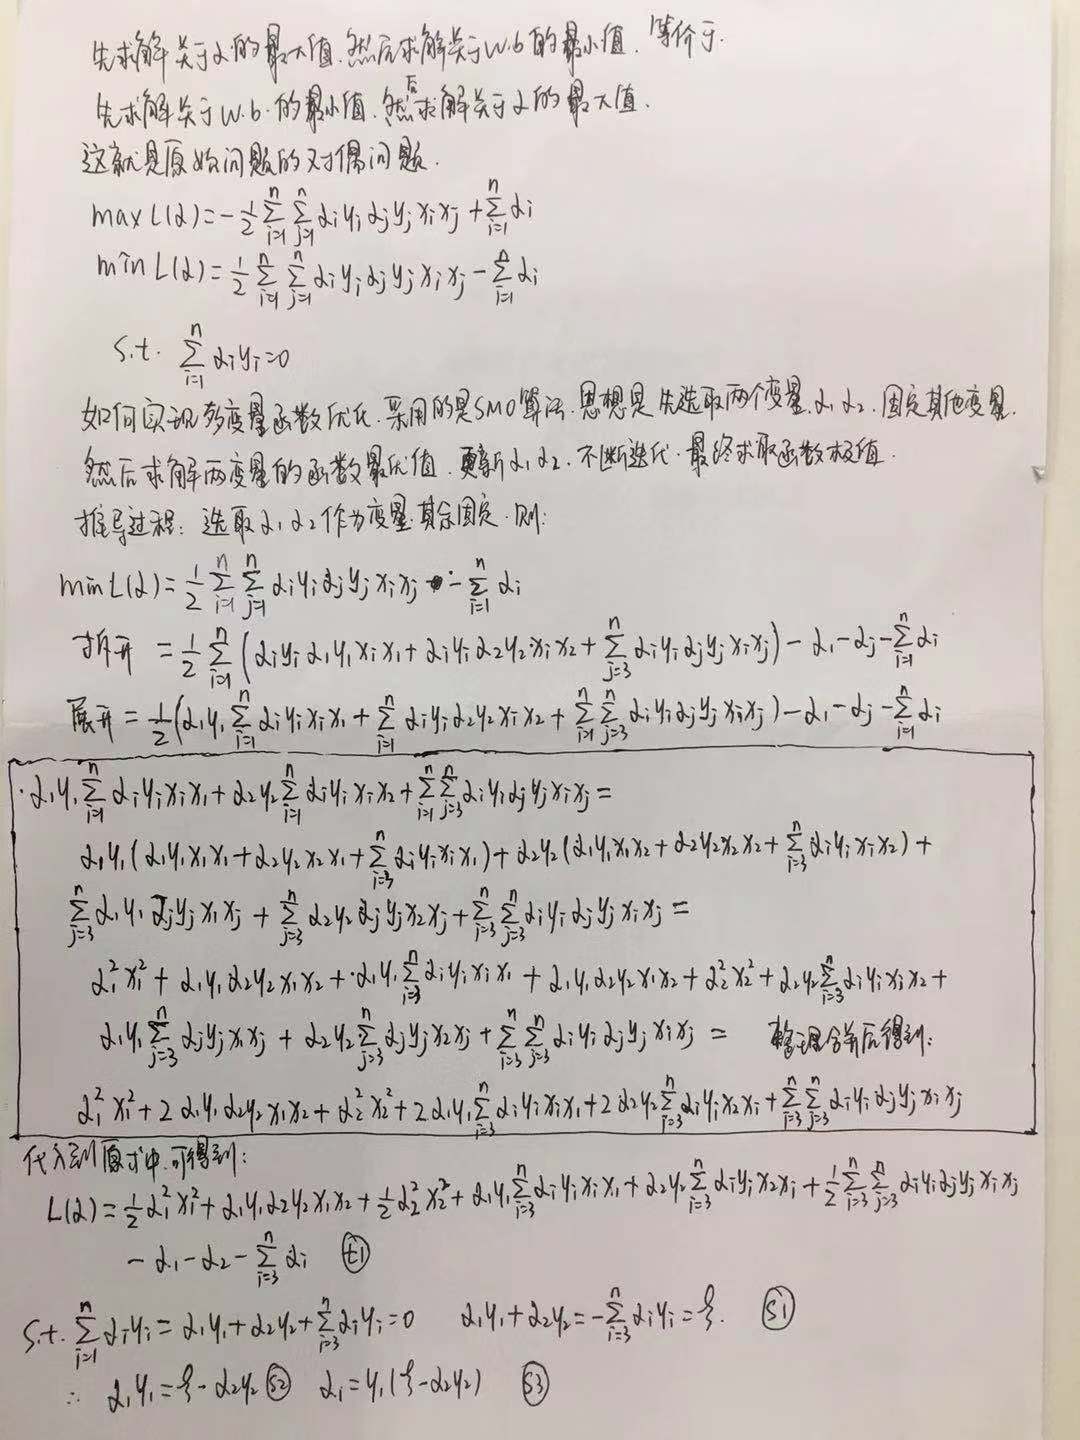 先求解关于α的最大值,然后求解关于w.b的最小值,等价于.
先求解关于w.b.的最小值,然后求解关于α的最大值.
这就是原始问题的对偶问题.
max L(α)=-½∑_{i=1}^{n}∑_{j=1}^{n}αiyiαjyjxixj+∑_{i=1}^{n}αi
min L(α)=½∑_{i=1}^{n}∑_{j=1}^{n}αiyiαjyjxixj-∑_{i=1}^{n}αi
s.t. ∑_{i=1}^{n}αiyi=0
如何实现多变量函数优化.采用的是SMO算法.思想是先选取两个变量,α₁α₂.固定其他变量.
然后求解两变量的函数最优值.更新α₁α₂.不断迭代.最终求取函数极值.
推导过程:选取α₁α₂作为变量.其余固定.则:
min L(α)=½∑_{i=1}^{n}∑_{j=1}^{n}αiyiαjyjxixj-∑_{i=1}^{n}αi
拆开=½∑_{i=1}^{n}(αiyiα₁y₁xix₁+αiyiα₂y₂xix₂+∑_{j=3}^{n}αiyiαjyjxixj)-α₁-αj-∑_{i=1}^{n}αi
展开=½(α₁y₁∑_{i=1}^{n}αiyixix₁+∑_{i=1}^{n}αiyiα₂y₂xix₂+∑_{i=1}^{n}∑_{j=3}^{n}αiyiαjyjxixj)-α₁-αj-∑_{i=1}^{n}αi
·α₁y₁∑_{i=1}^{n}αiyixix₁+α₂y₂∑_{i=1}^{n}αiyixix₂+∑_{i=1}^{n}∑_{j=3}^{n}αiyiαjyjxixj=
α₁y₁(α₁y₁x₁x₁+α₂y₂x₂x₁+∑_{i=3}^{n}αiyixix₁)+α₂y₂(α₁y₁x₁x₂+α₂y₂x₂x₂+∑_{i=3}^{n}αiyixix₂)+
∑_{j=3}^{n}α₁y₁αjyjx₁xj+∑_{j=3}^{n}α₂y₂αjyjx₂xj+∑_{i=3}^{n}∑_{j=3}^{n}αiyiαjyjxixj=
α₁²x₁²+α₁y₁α₂y₂x₁x₂+·α₁y₁∑_{i=3}^{n}αiyixix₁+α₁y₁α₂y₂x₁x₂+α₂²x₂²+α₂y₂∑_{i=3}^{n}αiyixix₂+
α₁y₁∑_{j=3}^{n}αjyjx₁xj+α₂y₂∑_{j=3}^{n}αjyjx₂xj+∑_{i=3}^{n}∑_{j=3}^{n}αiyiαjyjxixj= 整理合并后得到:
α₁²x₁²+2α₁y₁α₂y₂x₁x₂+α₂²x₂²+2α₁y₁∑_{i=3}^{n}αiyixix₁+2α₂y₂∑_{i=3}^{n}αiyix₂xi+∑_{i=3}^{n}∑_{j=3}^{n}αiyiαjyjxixj
代入到原式中,可得到:
L(α)=½α₁²x₁²+α₁y₁α₂y₂x₁x₂+½α₂²x₂²+α₁y₁∑_{i=3}^{n}αiyixix₁+α₂y₂∑_{i=3}^{n}αiyix₂xi+½∑_{i=3}^{n}∑_{j=3}^{n}αiyiαjyjxixj
-α₁-α₂-∑_{i=3}^{n}αi (t1)
s.t.∑_{i=1}^{n}αiyi=α₁y₁+α₂y₂+∑_{i=3}^{n}αiyi=0 α₁y₁+α₂y₂=-∑_{i=3}^{n}αiyi=ξ. (S1)
∴ α₁y₁=ξ-α₂y₂ (S2) α₁=y₁(ξ-α₂y₂) (S3)